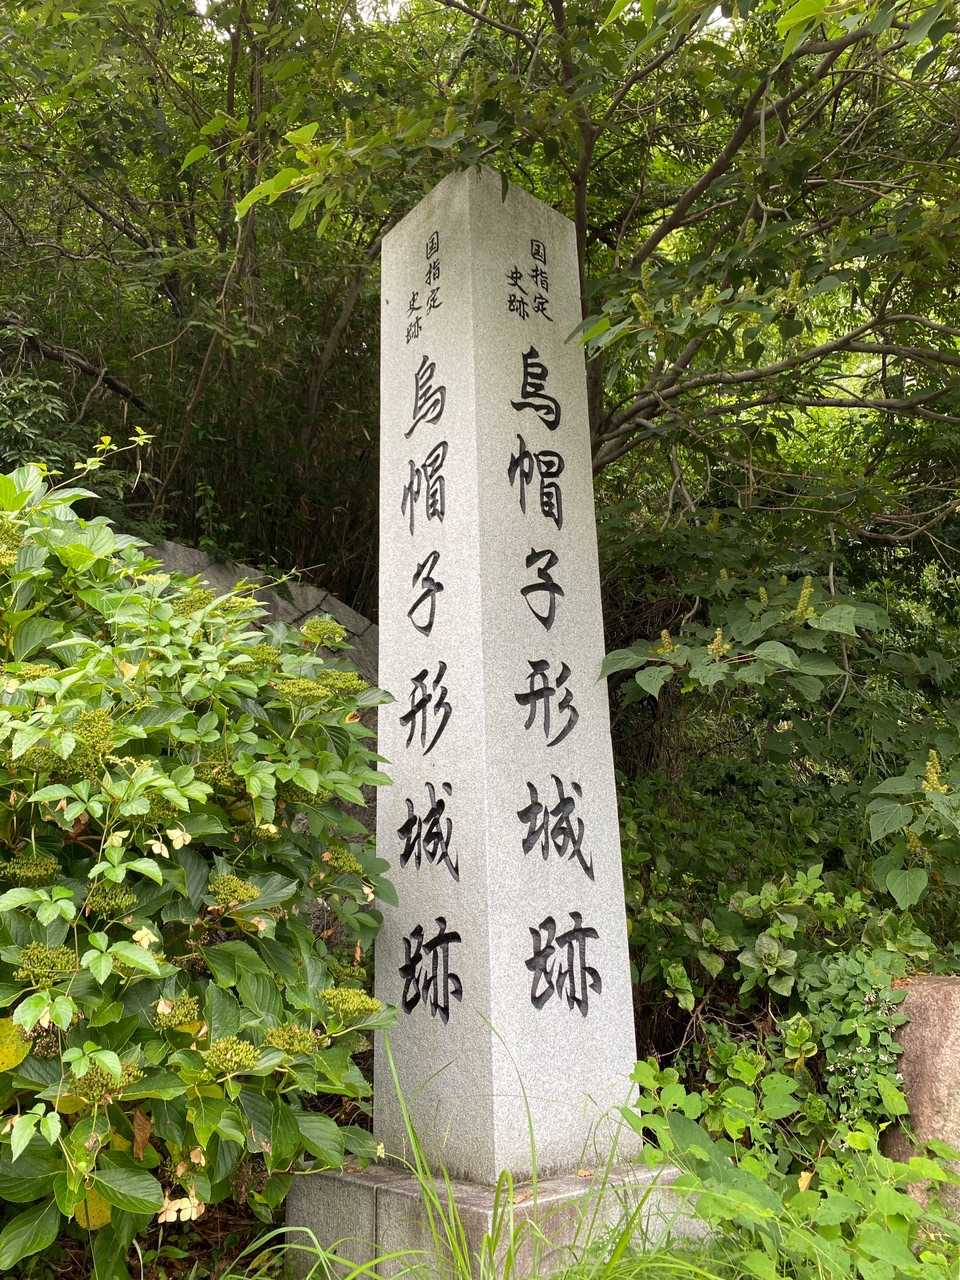 国指定
史跡
烏帽子形城跡
国指定
史跡
烏帽子形城跡